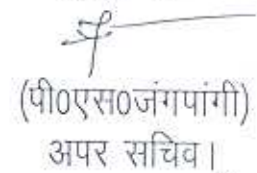 (पी0एस0जंगपांगी)
अपर सचिव।